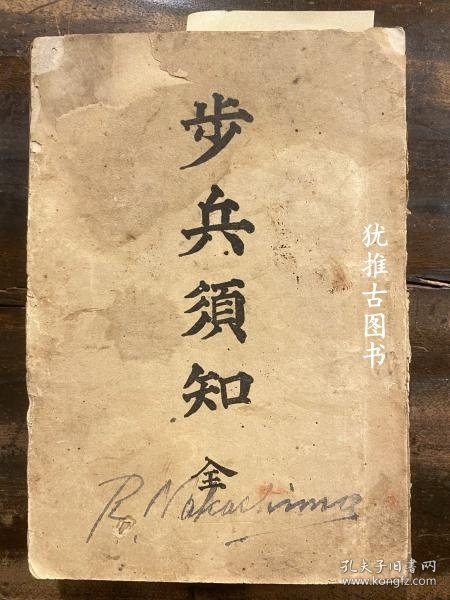 步兵須知
全
R. Nakashima
犹推古图书
孔夫子旧书网
www.kongfz.com